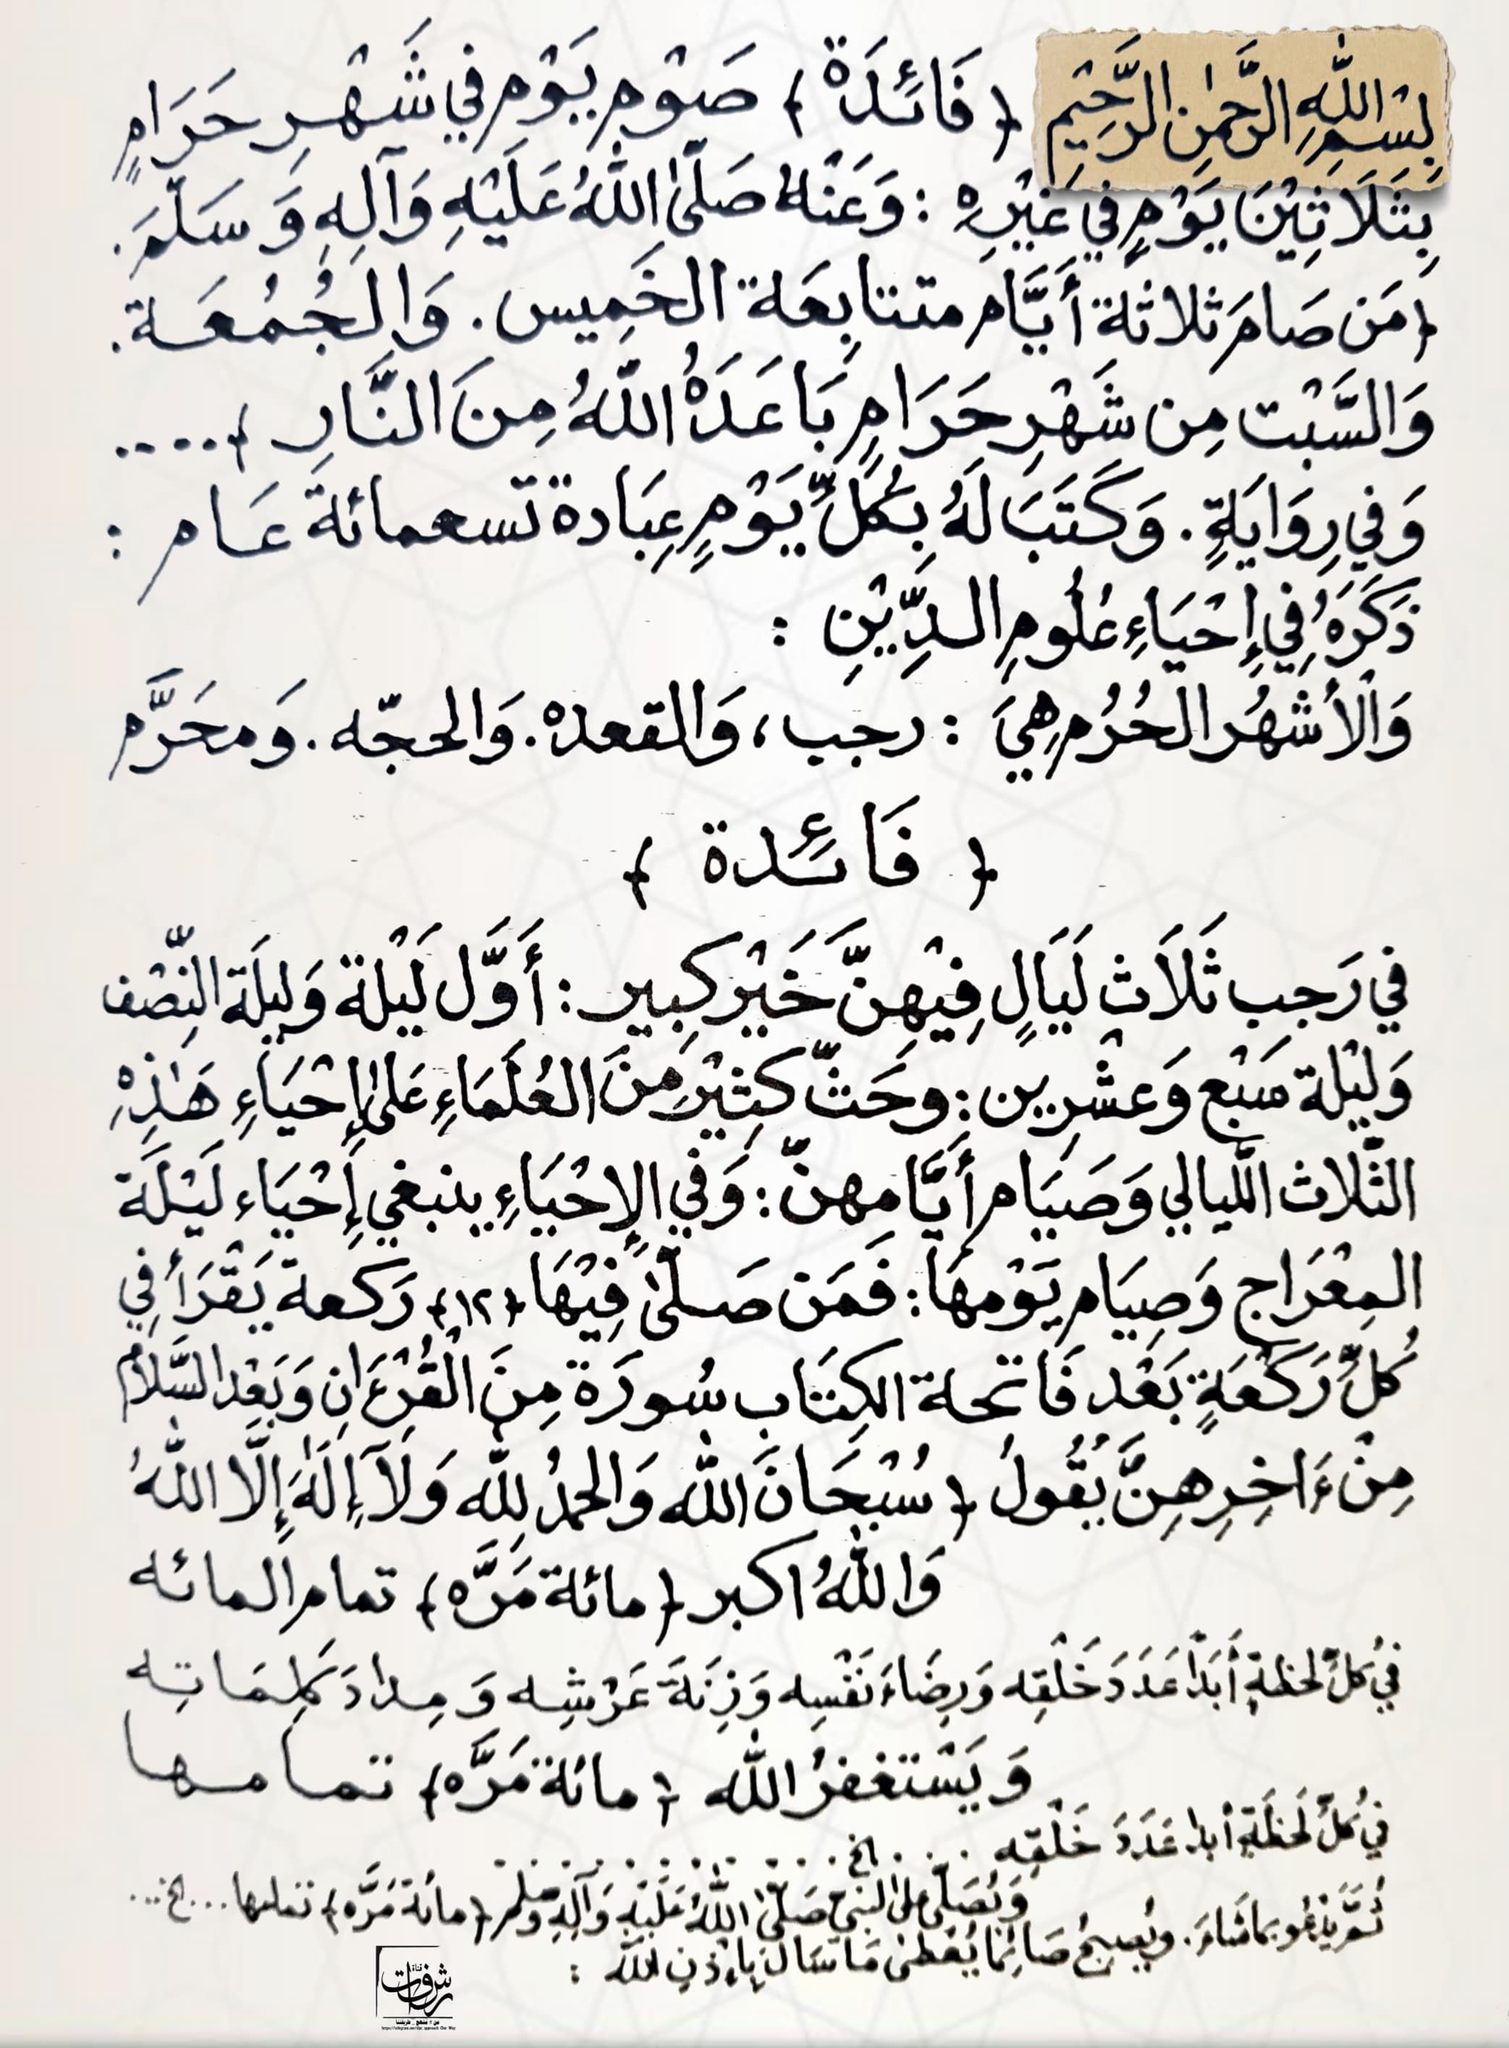 بِسْمِ اللَّهِ الرَّحْمٰنِ الرَّحِيْمِ ﴿ فَائِدَة ﴾ صَوْم يَوْم في شَهْرٍ حَرَامٍ
بِثَلَاثِيْنَ يَوْمٍ في غَيْرِهِ : وَعَنْهُ صَلَّىٰ اللهُ عَلَيْهِ وَآلِهِ وَسَلَّمَ .
﴿ مَن صَامَ ثلاثة أَيَّام متتابِعَة الخَمِيس . وَالجُمُعَة .
وَالسَّبْت مِن شَهْرِ حَرَامٍ بَاعَدَهُ اللهُ مِنَ النَّارِ ﴾ ....
وَفي رِوَايَةٍ . وَكَتَبَ لَهُ بِكُلِّ يَوْمٍ عِبَادة تسعمائة عَام :
ذَكَرَهُ فِي إِحْيَاءِ عُلُومِ الدِّيْنِ :
وَالْأشهُر الحُرُم هِيَ : رجب ، وَالقعده . وَالحجّه . وَمحَرَّم
﴿ فَائِدة ﴾
في رَجب ثَلَاث لَيَالٍ فِيْهِنَّ خَيْر كبِير : أَوَّل لَيْلة وَليلَة النِّصْف
وَليْلة سَبْع وَعشْرِين : وحَثّ كثِيْر مِنَ العُلَمَاءِ عَلىٰ إِحْيَاءِ هَٰذِهِ
الثَّلاث اللَّيالي وَصَيَام أَيَّامِهنّ : وَفي الإِحْيَاءِ ينبغي إِحْيَاء لَيْلَة
المِعْرَاج وَصِيَام يَوْمهَا : فَمَن صَلّىٰ فِيْهَا ﴿١٢﴾ رَكعة يَقْرَأ في
كُلِّ رَكْعَةٍ بَعْد فَاتحة الكِتَاب سُورَة مِنَ الْقُرْءَانِ وَبَعْد السَّلَام
مِنْ ءَاخِرِهِنَّ يَقُولُ ﴿ سُبْحَانَ اللّه وَالحمدُ لِلّه وَلَآ إِلَٰهَ إِلَّا اللهُ
وَاللهُ اكبر ﴿ مائة مَرَّه ﴾ تمام المائه
في كلِّ لحظةٍ أَبَدًا عَدَدَ خَلْقِه وَرِضَاءَ نَفْسِه وَزِنَةَ عَرْشِه وَمِدادَ كَلِمَاتِه
وَيَسْتغفرُ اللّه ﴿ مائة مَرَّه ﴾ تمامها
في كُلِّ لَحظَةٍ أبدا عَدَدَ خَلْقِه ..... الخ .....
وَيُصَلّي على النبي صَلَّىٰ اللهُ عَلَيْهِ وَآلِهِ وسلم ﴿ مائة مَرَّه ﴾ تمامها ... الخ ...
ثُمَّ يَدْعُو بما شَاءَ . ويُصبحُ صَائِمًا يُعْطىٰ مَا سَألَ بِإِذْنِ اللّه :
قناة
رشفات